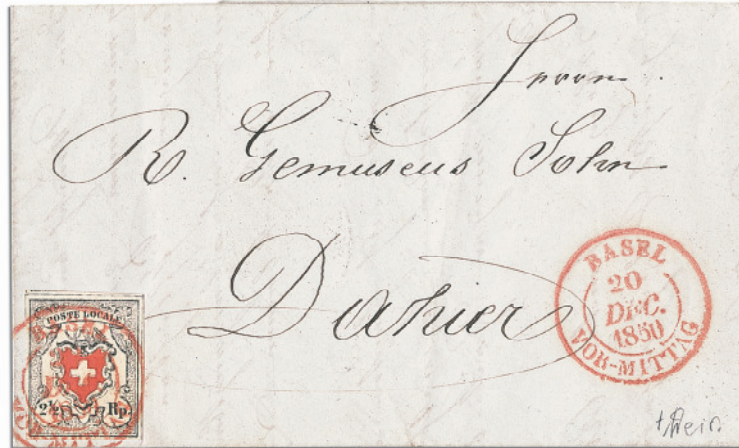 Herrn
R. Gemuseus Sohn
Dahier
BASEL
20
DEC.
1850
VOR-MITTAG
POSTE LOCALE
2½ Rp.